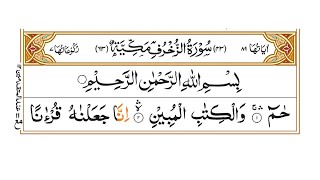 اٰيَاتُهَا ٨٩ (٤٣) سُوْرَةُ الزُّخْرُفِ مَكِّيَّةٌ (٦٣) رُكُوْعَاتُهَا ٧
بِسْمِ اللّٰهِ الرَّحْمٰنِ الرَّحِيْمِ
حٰمٓ ۚ ۱ وَالْكِتٰبِ الْمُبِيْنِ ۙ ۲ اِنَّا جَعَلْنٰهُ قُرْءٰنًا